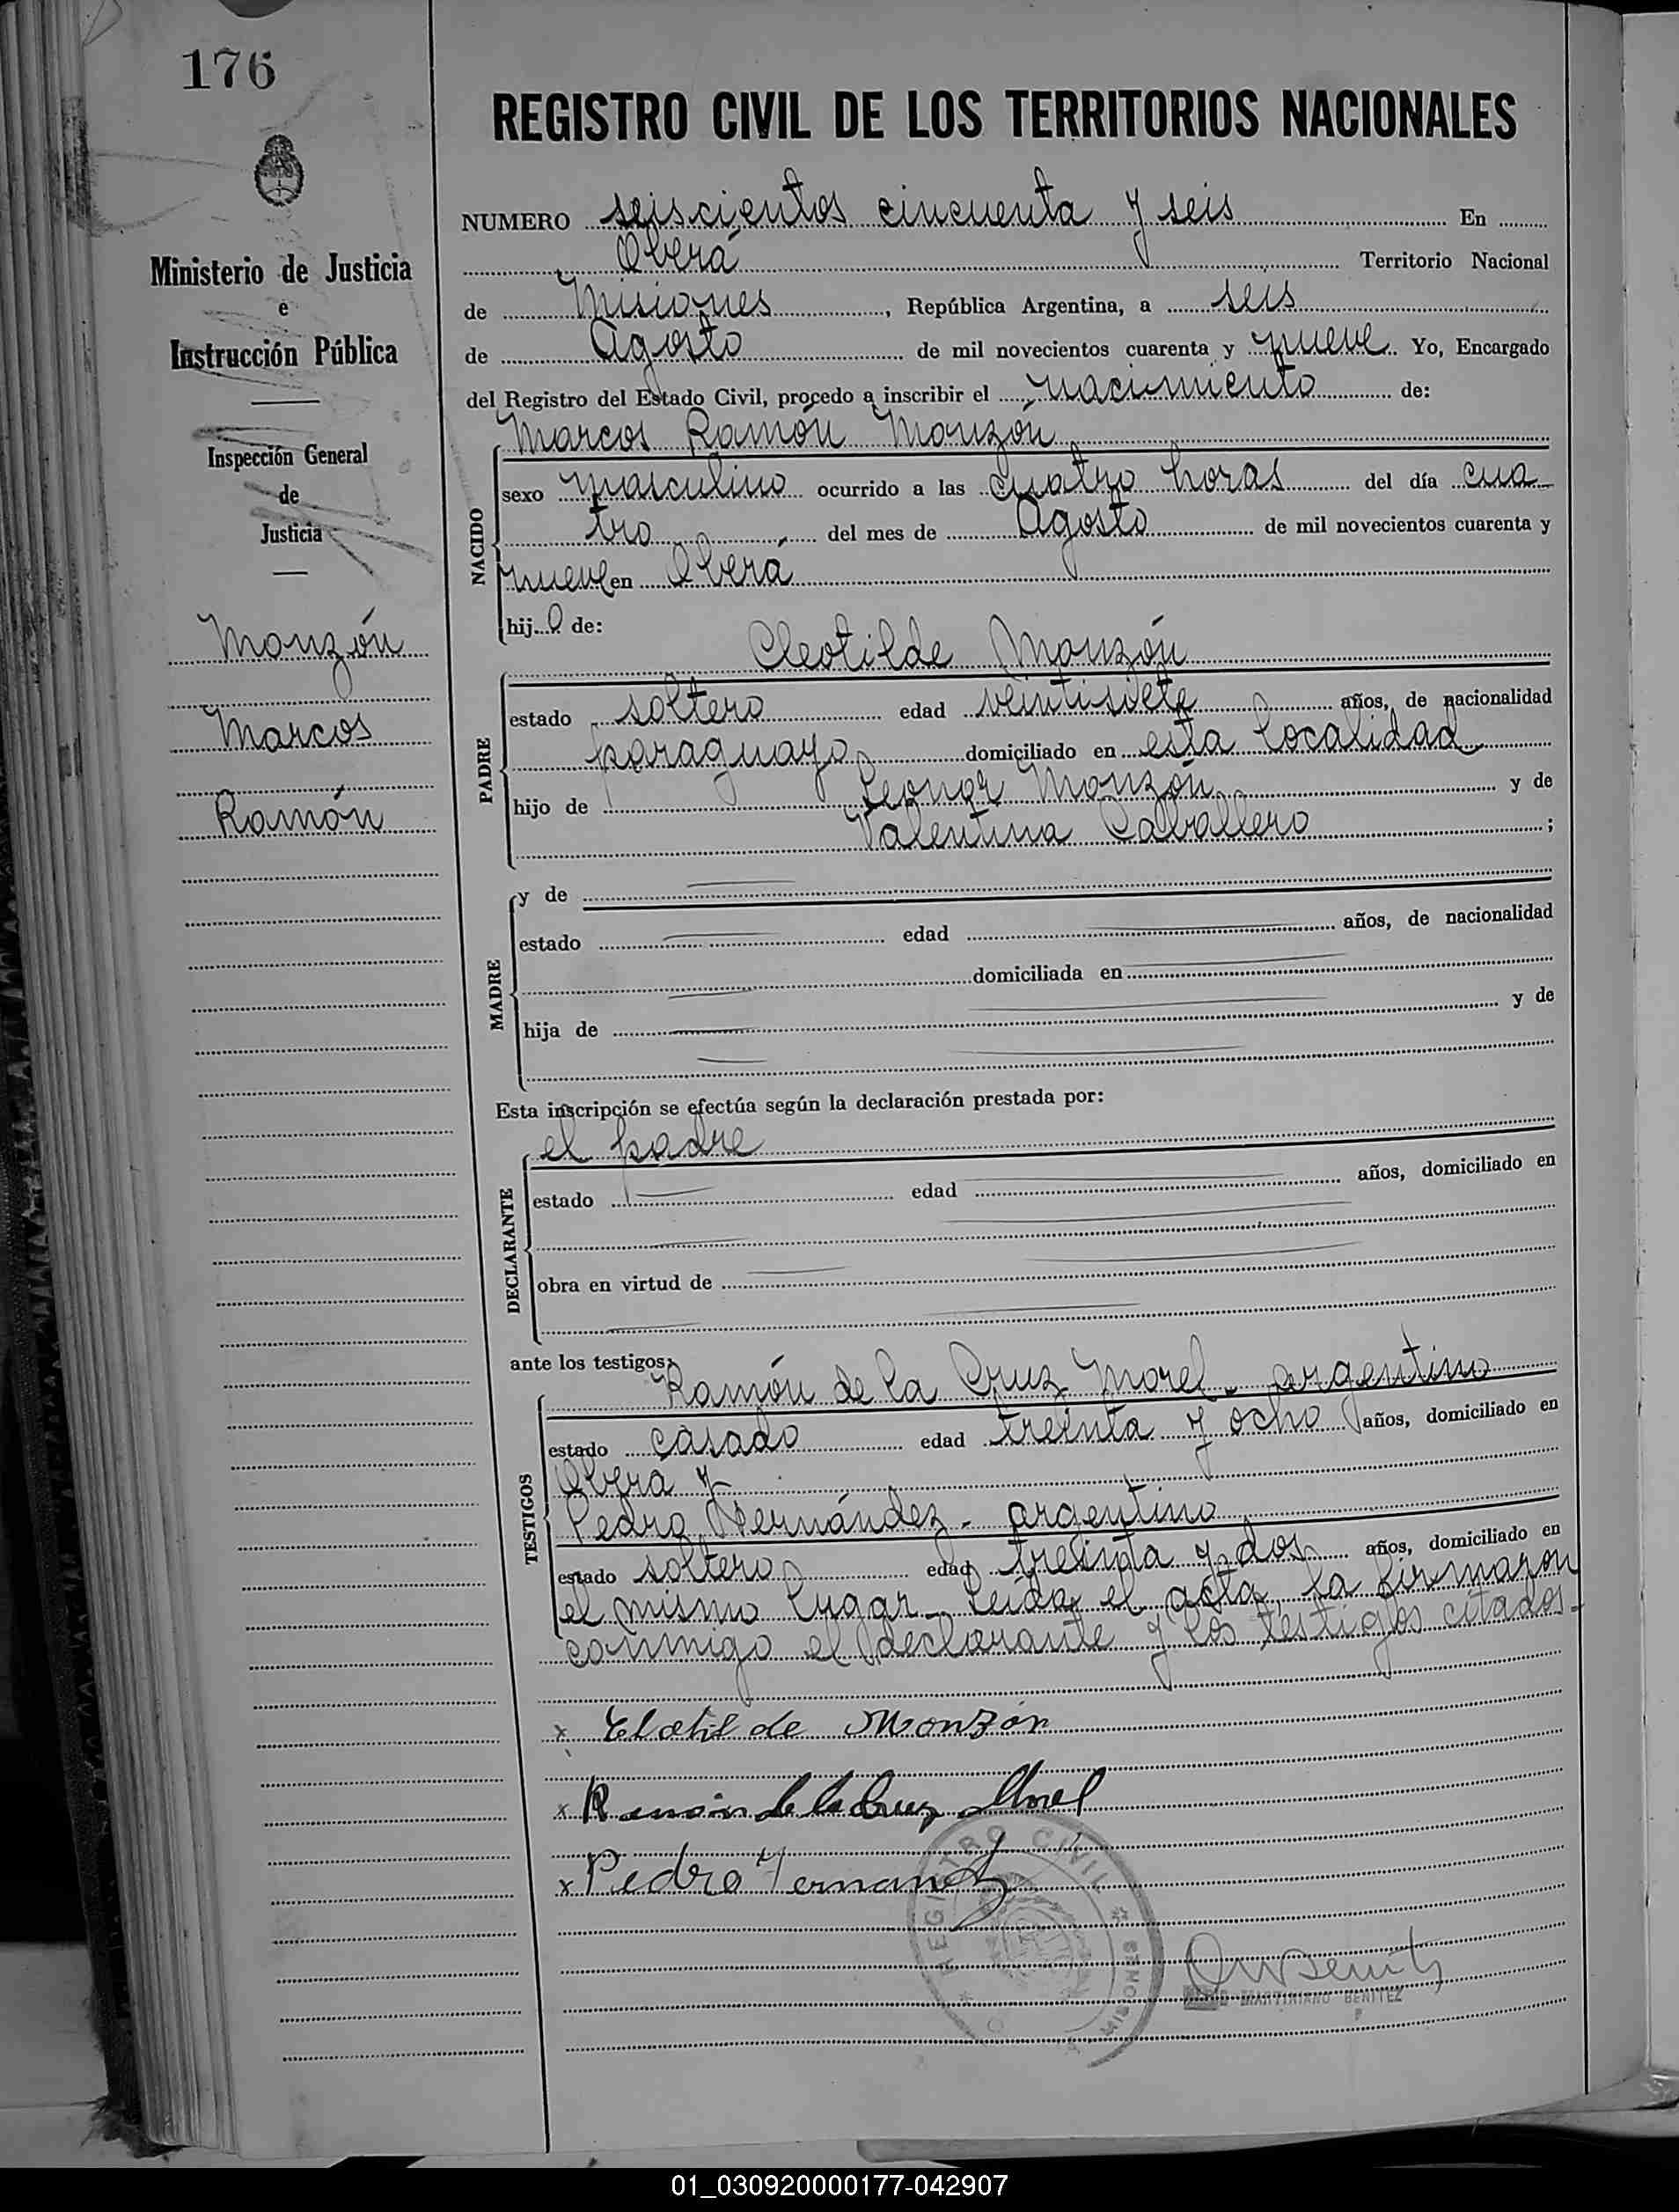 176
REGISTRO CIVIL DE LOS TERRITORIOS NACIONALES
Ministerio de Justicia
e
Instrucción Pública
Inspección General
de
Justicia
Monzón
Marcos
Ramón
NUMERO seiscientos cincuenta y seis En
Oberá Territorio Nacional
de Misiones, República Argentina, a seis
de Agosto de mil novecientos cuarenta y nueve Yo, Encargado
del Registro del Estado Civil, procedo a inscribir el nacimiento de:
Marcos Ramón Monzón
NACIDO
sexo masculino ocurrido a las cuatro horas del día cua
tro del mes de Agosto de mil novecientos cuarenta y
nueve en Oberá
hijo de:
Cleotilde Monzón
PADRE
estado soltero edad veintisiete años, de nacionalidad
paraguayo domiciliado en esta localidad
hijo de Leonor Monzón y de
Valentina Caballero ;
MADRE
y de
estado edad años, de nacionalidad
domiciliada en
hija de y de
Esta inscripción se efectúa según la declaración prestada por:
el padre
DECLARANTE
estado edad años, domiciliado en
obra en virtud de
ante los testigos:
Ramón de la Cruz Morel - argentino
TESTIGOS
estado casado edad treinta y ocho años, domiciliado en
Oberá y
Pedro Hernández - argentino
estado soltero edad treinta y dos años, domiciliado en
el mismo lugar - Leída el acta, la firmaron
conmigo el declarante y los testigos citados -
x Clotilde Monzón
x Ramón de la Cruz Morel
x Pedro Hernandez
REGISTRO CIVIL
MISIONES
MARTINIANO BENITEZ
01_030920000177-042907